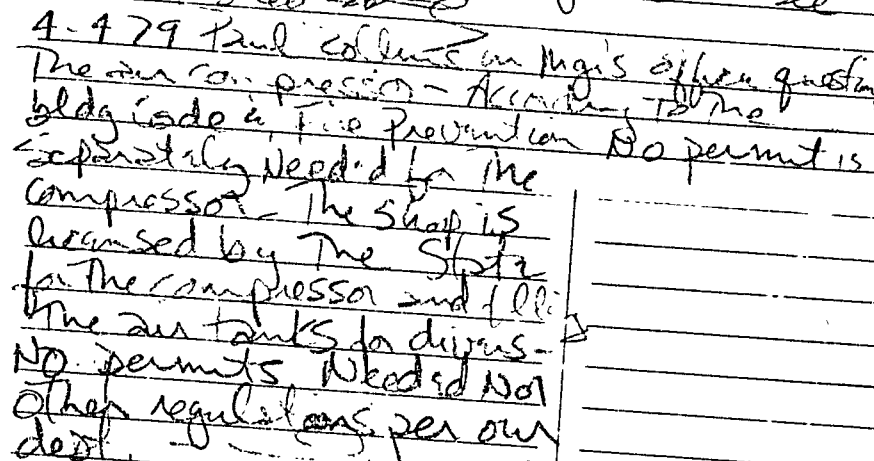 4-4 79 Paul Collins in Mgr's office question
The air compressor - According To The
bldg code & Fire Prevention No permit is
Separately Needed for The
compressor - The shop is
licensed by The State
for The compressor and
The air tanks for divers -
No permits Needed Nor
Other regulations per our
dept.